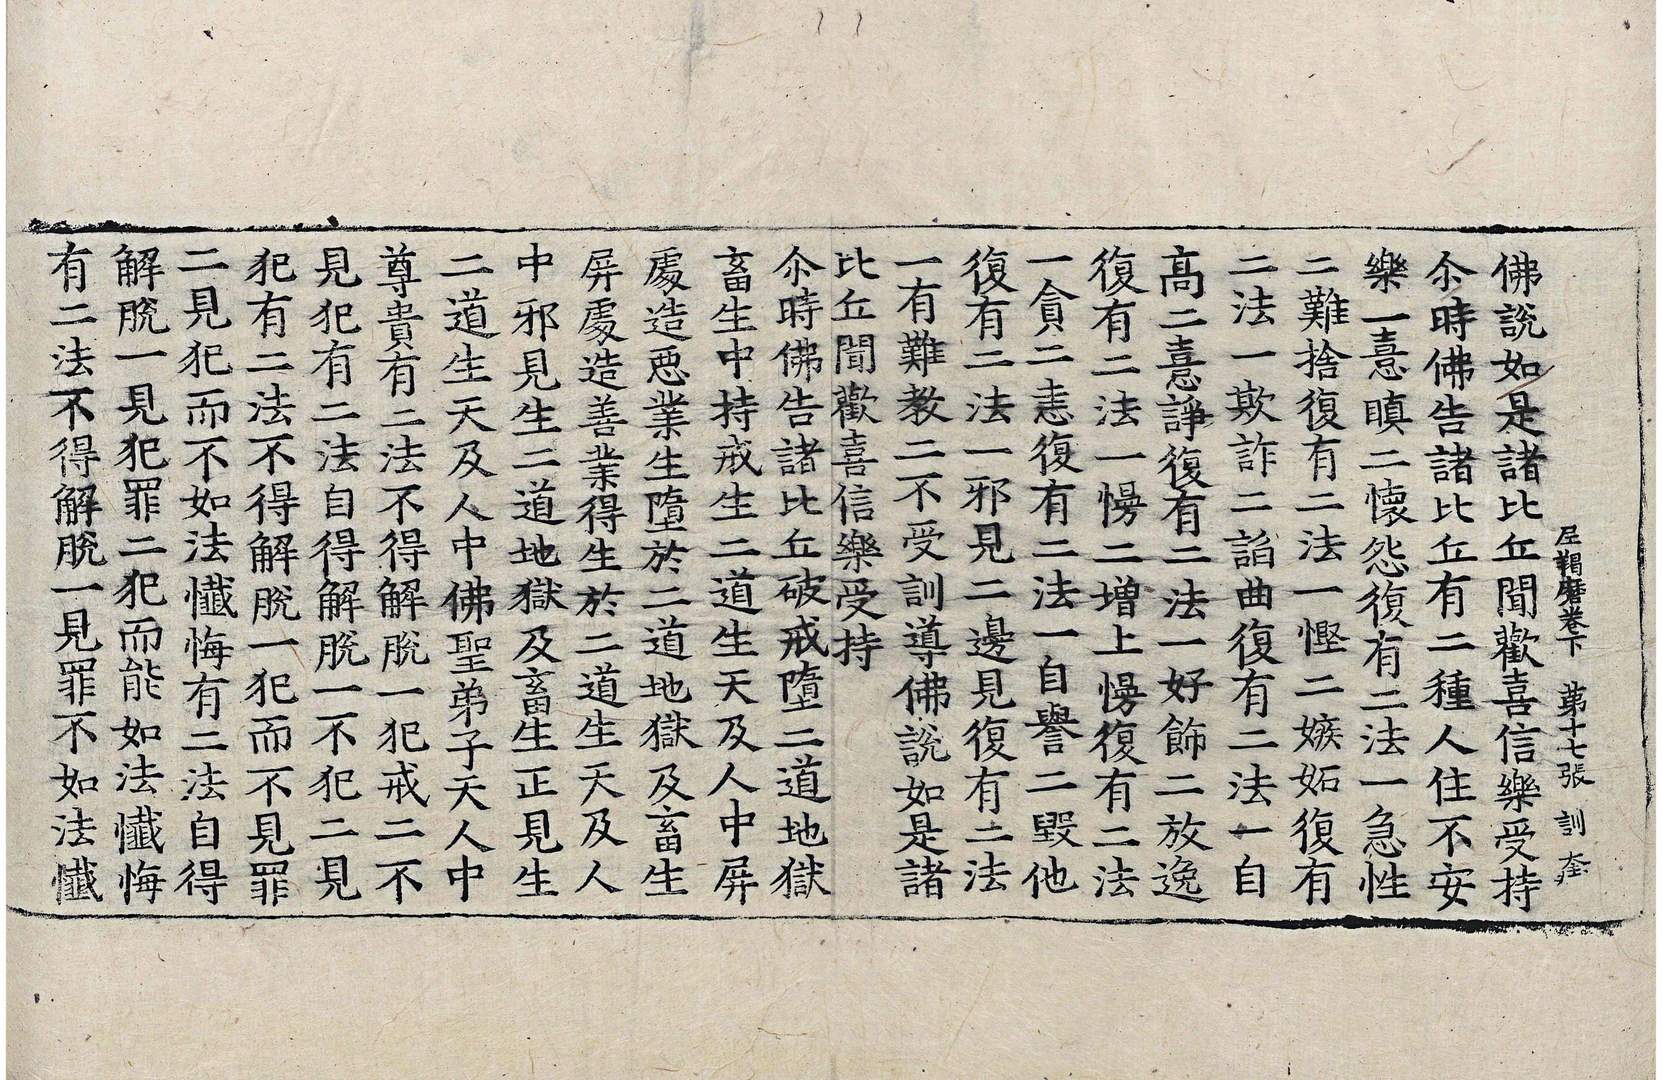 尼羯磨卷下 第十七張 訓
佛說如是諸比丘聞歡喜信樂受持
尒時佛告諸比丘有二種人住不安
樂一憙瞋二懷怨復有二法一急性
二難捨復有二法一慳二嫉妬復有
二法一欺詐二諂曲復有二法一自
高二憙諍復有二法一好飾二放逸
復有二法一慢二增上慢復有二法
一貪二恚復有二法一自譽二毀他
復有二法一邪見二邊見復有二法
一有難教二不受訓導佛說如是諸
比丘聞歡喜信樂受持
尒時佛告諸比丘破戒墮二道地獄
畜生中持戒生二道生天及人中屏
處造惡業生墮於二道地獄及畜生
屏處造善業得生於二道生天及人
中邪見生二道地獄及畜生正見生
二道生天及人中佛聖弟子天人中
尊貴有二法不得解脫一犯戒二不
見犯有二法自得解脫一不犯二見
犯有二法不得解脫一犯而不見罪
二見犯而不如法懺悔有二法自得
解脫一見犯罪二犯而能如法懺悔
有二法不得解脫一見罪不如法懺